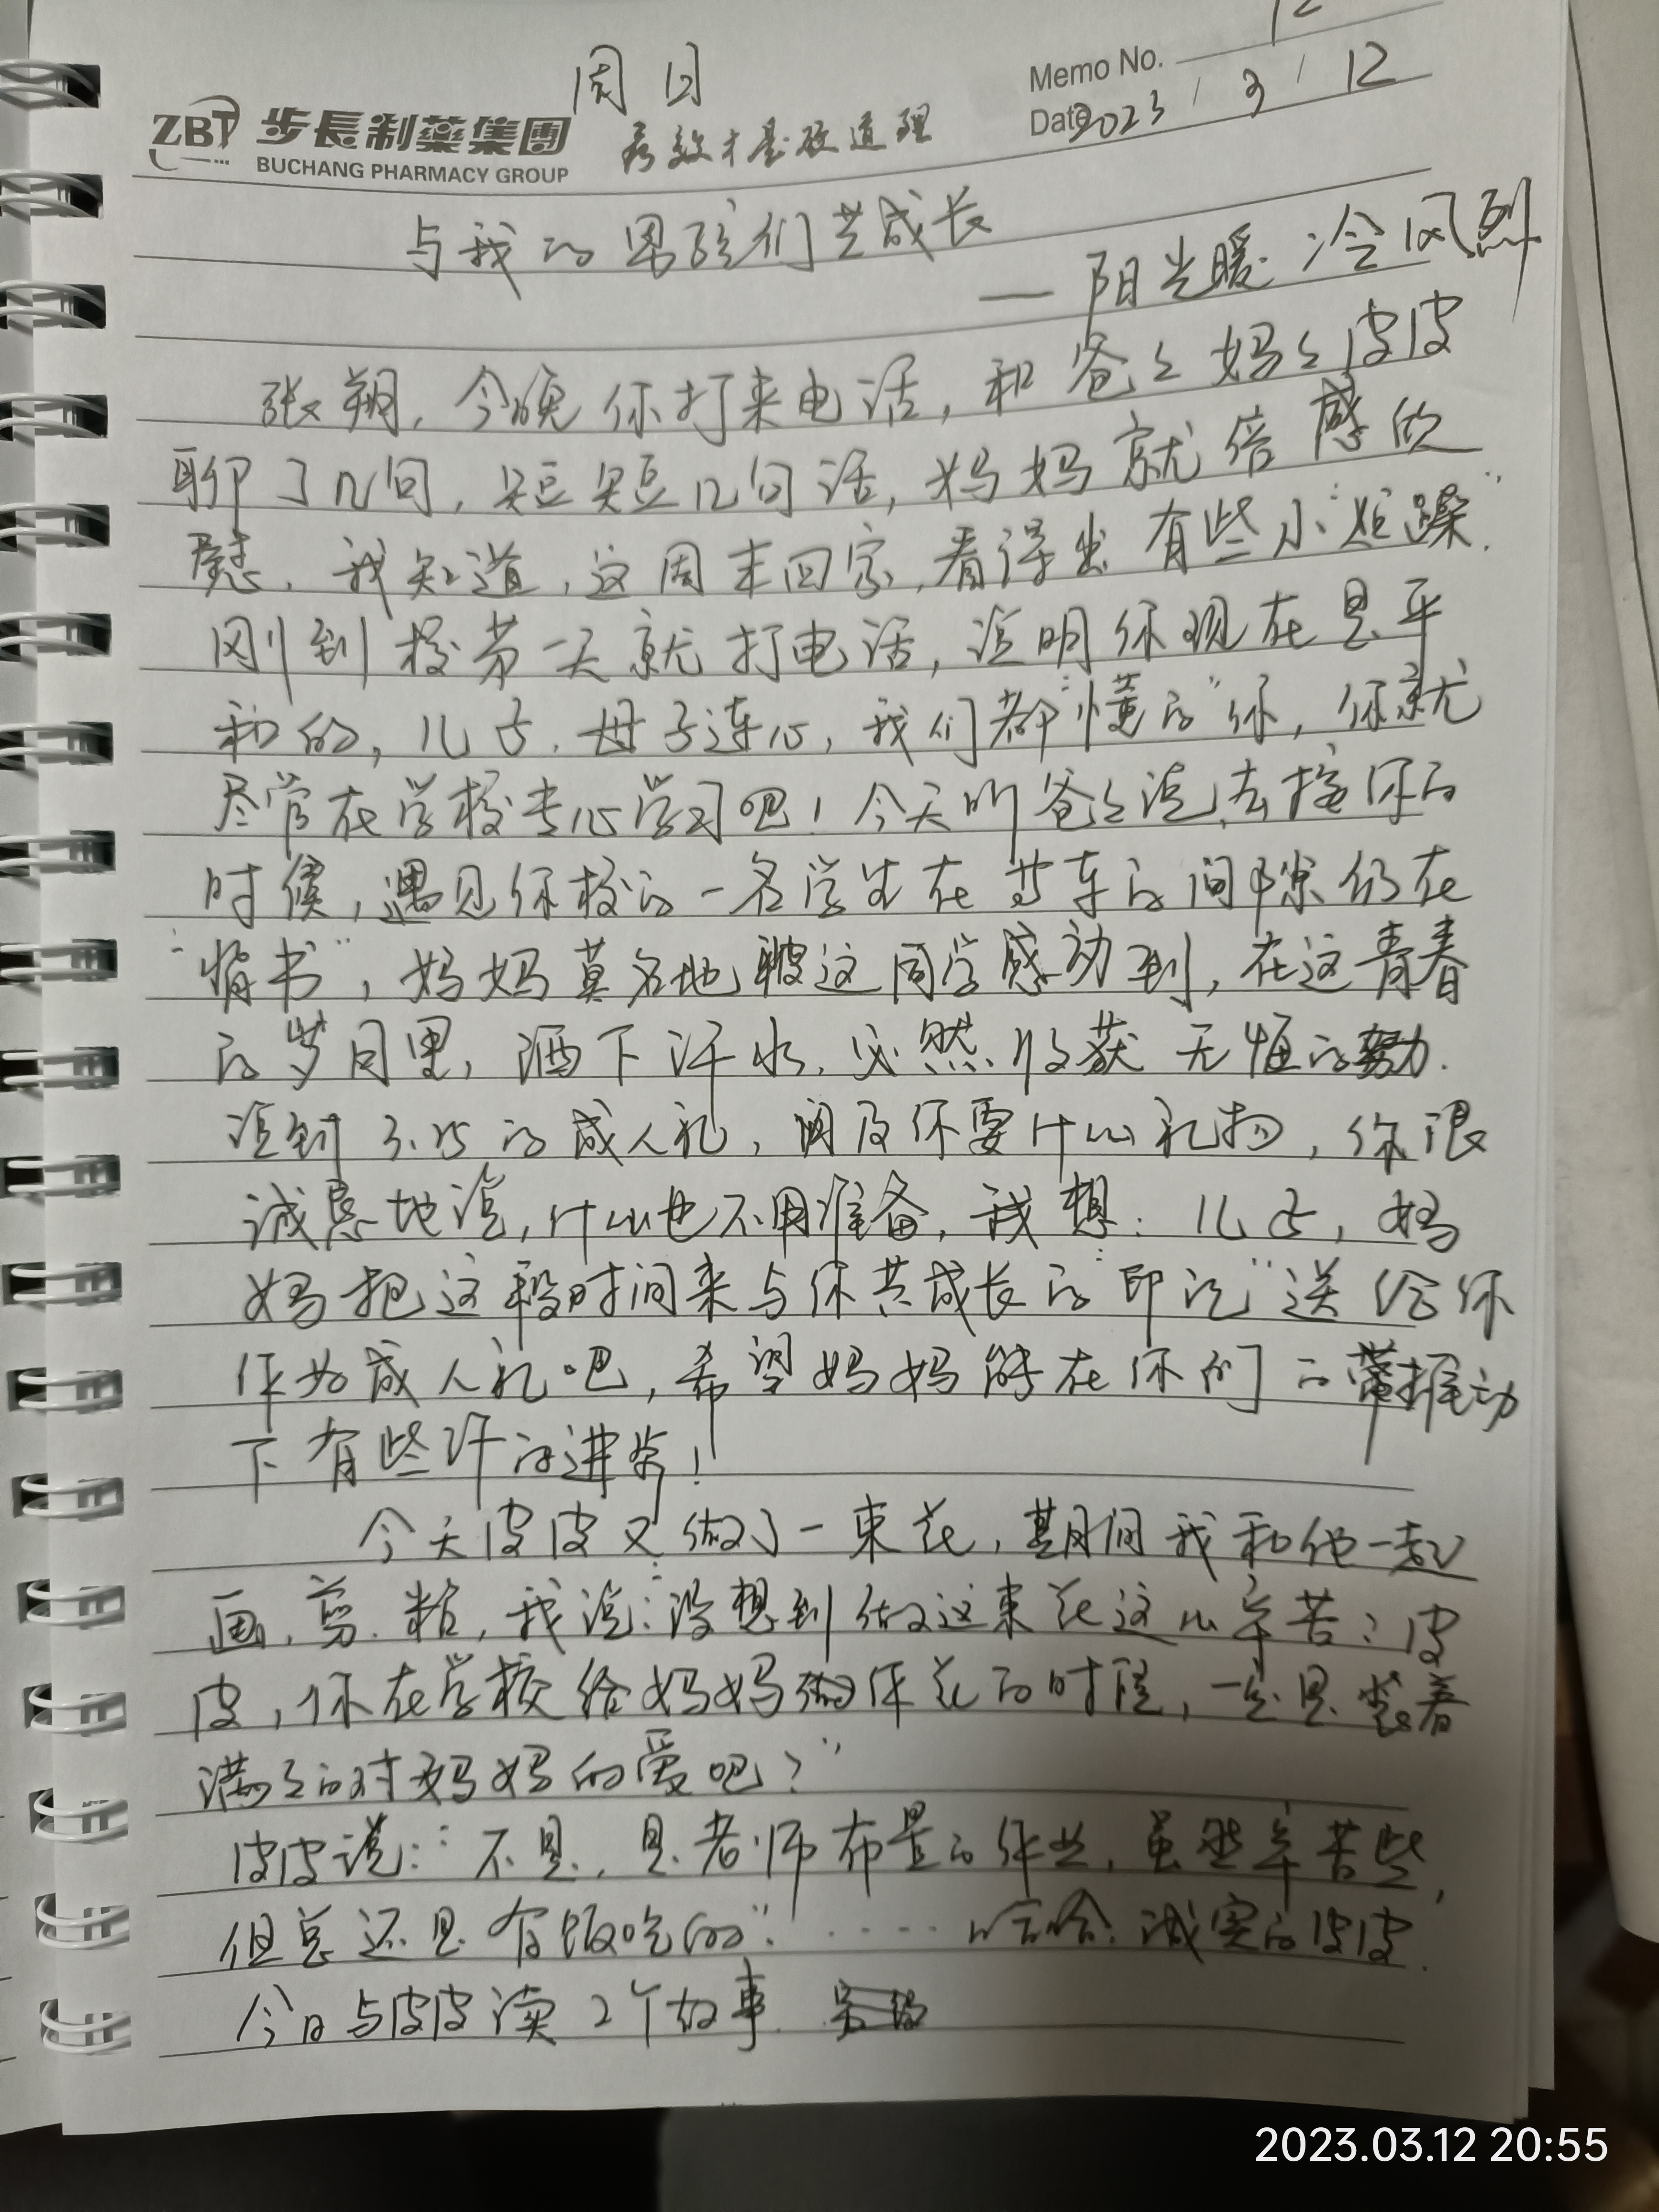 周日
Memo No. 12
ZBT 步長制藥集團
有效才是硬道理
Date 2023 / 3 / 12
BUCHANG PHARMACY GROUP
与我的男孩们共成长
— 阳光暖 冷风烈
张翔,今晚你打来电话,和爸々妈々皮皮
聊了几句,短短几句话,妈妈就倍感欣
慰,我知道,这周末回家,看得出有些小“烦躁”.
刚到校第一天就打电话,说明你现在是平
和的,儿子,母子连心,我们都“懂的”你,你就
尽管在学校专心学习吧!今天听爸々说,去接你的
时候,遇见你校的一名学生在等车的间隙仍在
“背书”,妈妈莫名地被这同学感动到,在这青春
的岁月里,洒下汗水,必然收获无悔的努力.
说到3.25的成人礼,问及你要什么礼物,你很
诚恳地说,什么也不用准备,我想:儿子,妈
妈把这段时间来与你共成长的“印记”送给你
作为成人礼吧,希望妈妈能在你们的带推动
下有些许的进步!
今天皮皮又做了一束花,期间我和他一起
画、剪、粘,我说:“没想到做这束花这么辛苦?皮
皮,你在学校给妈妈做作花的时候,一定是装着
满々的对妈妈的爱吧?”
皮皮说:“不是,是老师布置的作业,虽然辛苦些,
但总还是有饭吃的”!····· 哈哈,诚实的皮皮.
今日与皮皮读2个故事.
2023.03.12 20:55